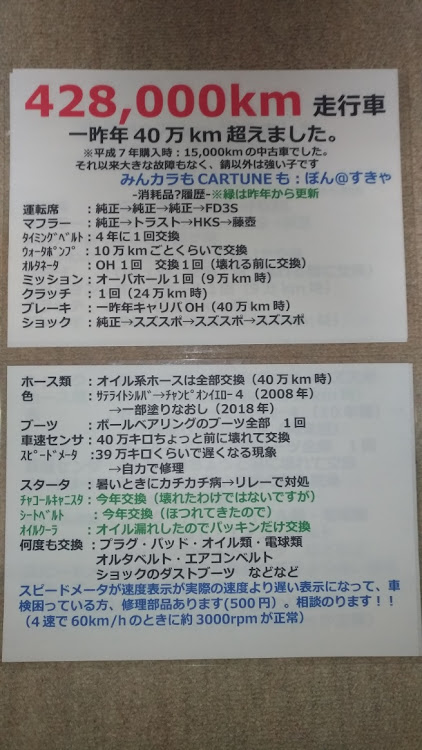 428,000km 走行車
一昨年40万km超えました。
※平成7年購入時:15,000kmの中古車でした。
それ以来大きな故障もなく、錆以外は強い子です
みんカラもCARTUNEも:ぼん@すきゃ
-消耗品?履歴-※緑は昨年から更新
運転席 :純正→純正→純正→FD3S
マフラー :純正→トラスト→HKS→藤壺
タイミングベルト:4年に1回交換
ウォータポンプ :10万kmごとくらいで交換
オルタネータ :OH1回 交換1回(壊れる前に交換)
ミッション:オーバホール1回(9万km時)
クラッチ :1回(24万km時)
ブレーキ :一昨年キャリパOH(40万km時)
ショック :純正→スズスポ→スズスポ→スズスポ
ホース類 :オイル系ホースは全部交換(40万km時)
色 :サテライトシルバ→チャンピオンイエロー4(2008年)
→一部塗りなおし(2018年)
ブーツ :ボールベアリングのブーツ全部 1回
車速センサ:40万キロちょっと前に壊れて交換
スピードメータ :39万キロくらいで遅くなる現象
→自力で修理
スタータ :暑いときにカチカチ病→リレーで対処
チャコールキャニスタ:今年交換(壊れたわけではないですが)
シートベルト :今年交換(ほつれてきたので)
オイルクーラ :オイル漏れしたのでパッキンだけ交換
何度も交換:プラグ・パッド・オイル類・電球類
オルタベルト・エアコンベルト
ショックのダストブーツ などなど
スピードメータが速度表示が実際の速度より遅い表示になって、車
検困っている方、修理部品あります(500円)。相談のります!!
(4速で60km/hのときに約3000rpmが正常)